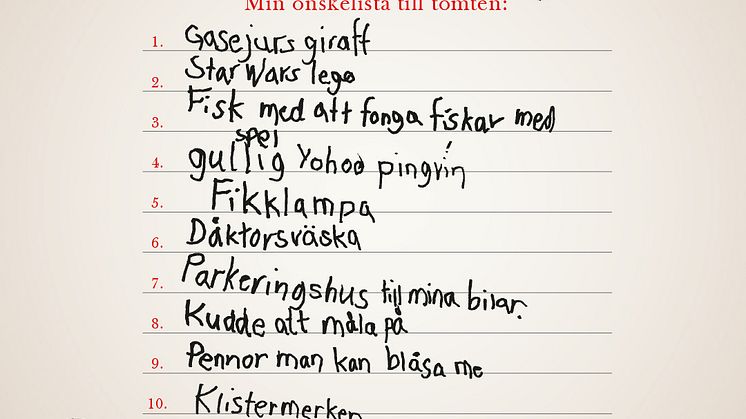 Min önskelista till tomten:
1. Gasejurs giraff
2. Star Wars lego
3. Fisk med att fonga fiskar med
spel
4. gullig Yohoo pingvin
5. Fikklampa
6. Dåktorsväska
7. Parkeringshus till mina bilar.
8. Kudde att måla på
9. Pennor man kan blåsa me
10. Klistermerken